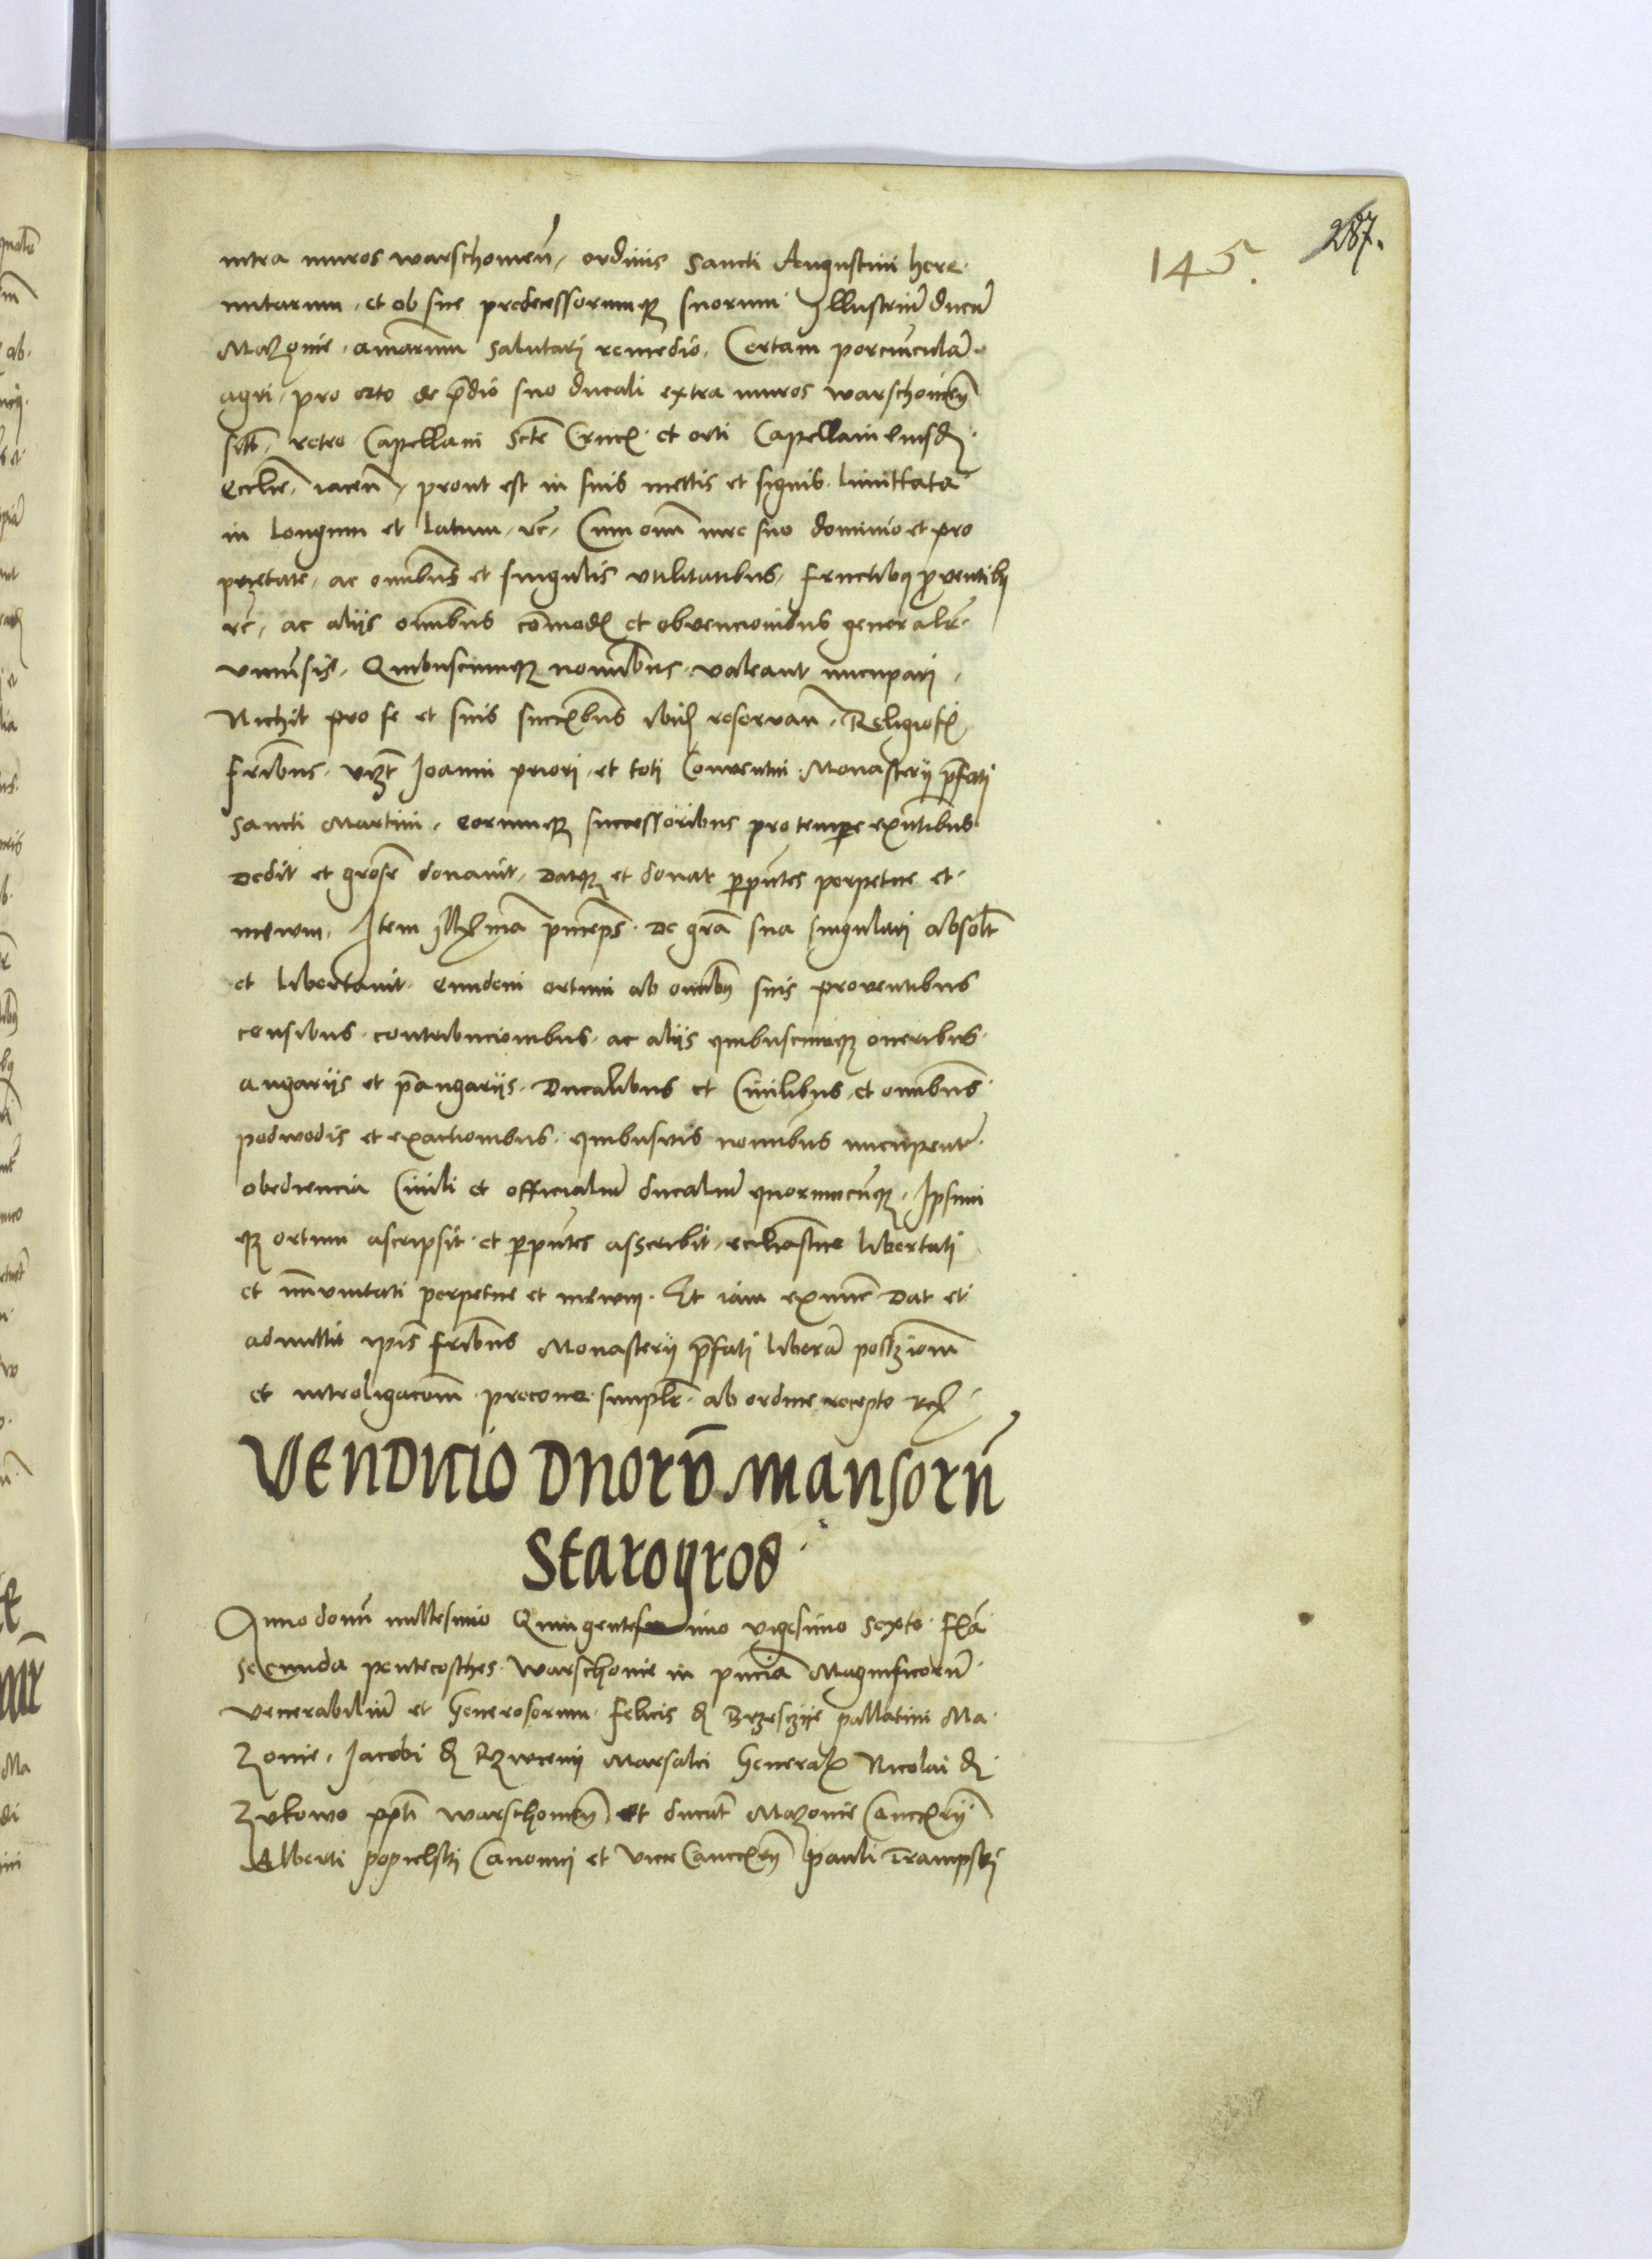 287.
145.
intra muros warschouien̄, ordinis Sancti Augustini here
mitarum, et ob sue predecessorumqʒ suorum Illustriu̅ ducu̅
Mazouie, ai̅arum salutari remedio, Certam porciu̅cula̅
agri, pro orto de p̅dio suo ducali extra muros warschouien̄
sit̅, retro Capellam Scte̅ Cruc̄ et orti Capellani eiusd̄
eccl̅ie, iacen̄, prout est in suis mettis et signis limittata
in longum et latum, rc̄, Cum om̅i iure suo dominio et pro
prietate, ac om̅ibus et singulis vtilitatibus, fructibꝯ prouentibꝯ
rc̄, ac alijs om̅ibus co̅mod̄ et obuencionibus generalr̅
vniu̅sis, Quibuscumqʒ nomi̅bus valeant nu̅cupari,
Nichil pro se et suis succ̅ibus ibid̄ reseruan̄, Religios̄
fr̅ibus, vʒt̅ Joanni priori, et toti Conuentui Monasterij p̅fati
Sancti Martini, eorumqʒ successoribus pro tempe exn̅tibus
Dedit et grose̅ donauit, datqʒ et donat p̲pn̅tes perpetue et
in ewm, Item Ill̅ma p̅nceps de gra̅ sua singulari absolt̅
et libertauit, eundem ortum ab om̅ibꝯ suis prouentibus
censibus contribucionibus, ac alijs quibuscumqʒ oneribus
angarijs et p̅angarijs, Ducalibus et Ciuilibus, et om̅ibus
podwodis et exactionibus, quibusuis nomi̅bus nu̅cupent̅
obediencia Ciuili et officialiu̅ ducaliu̅ quorumcu̅qʒ, Ipsum
qʒ ortum ascripsit et p̲pn̅tes asscribit, eccl̅iastice libertati
et im̅unitati perpetue et in ewm. Et iam ex nu̅c Dat et
admittit ip̅is fr̅ibus Monasterij p̅fati libera̅ possʒiom̅
et introligacom̅ precone simplr̅ ab ordine recepto Rc̄
Vendicio Duoru̅ Mansoru̅
Starogrod
Anno domi̅ millesimo Quingentesimo vigesimo Sexto f̅ia
secunda pentecosthes Warschouie in pn̅cia Magnificoru̅
Venerabiliu̅ et Generosorum felicis d̄ Brzesczije pallatini Ma
Zouie, Jacobi d̄ Rzwienij Marsalci General̄ Nicolai d̄
Zukowo pp̅ti warschouien̄ et ducat̅ Mazouie Canc̅rij
Alberti popielski Canonici et Vice Canc̅rij Pauli Trampski